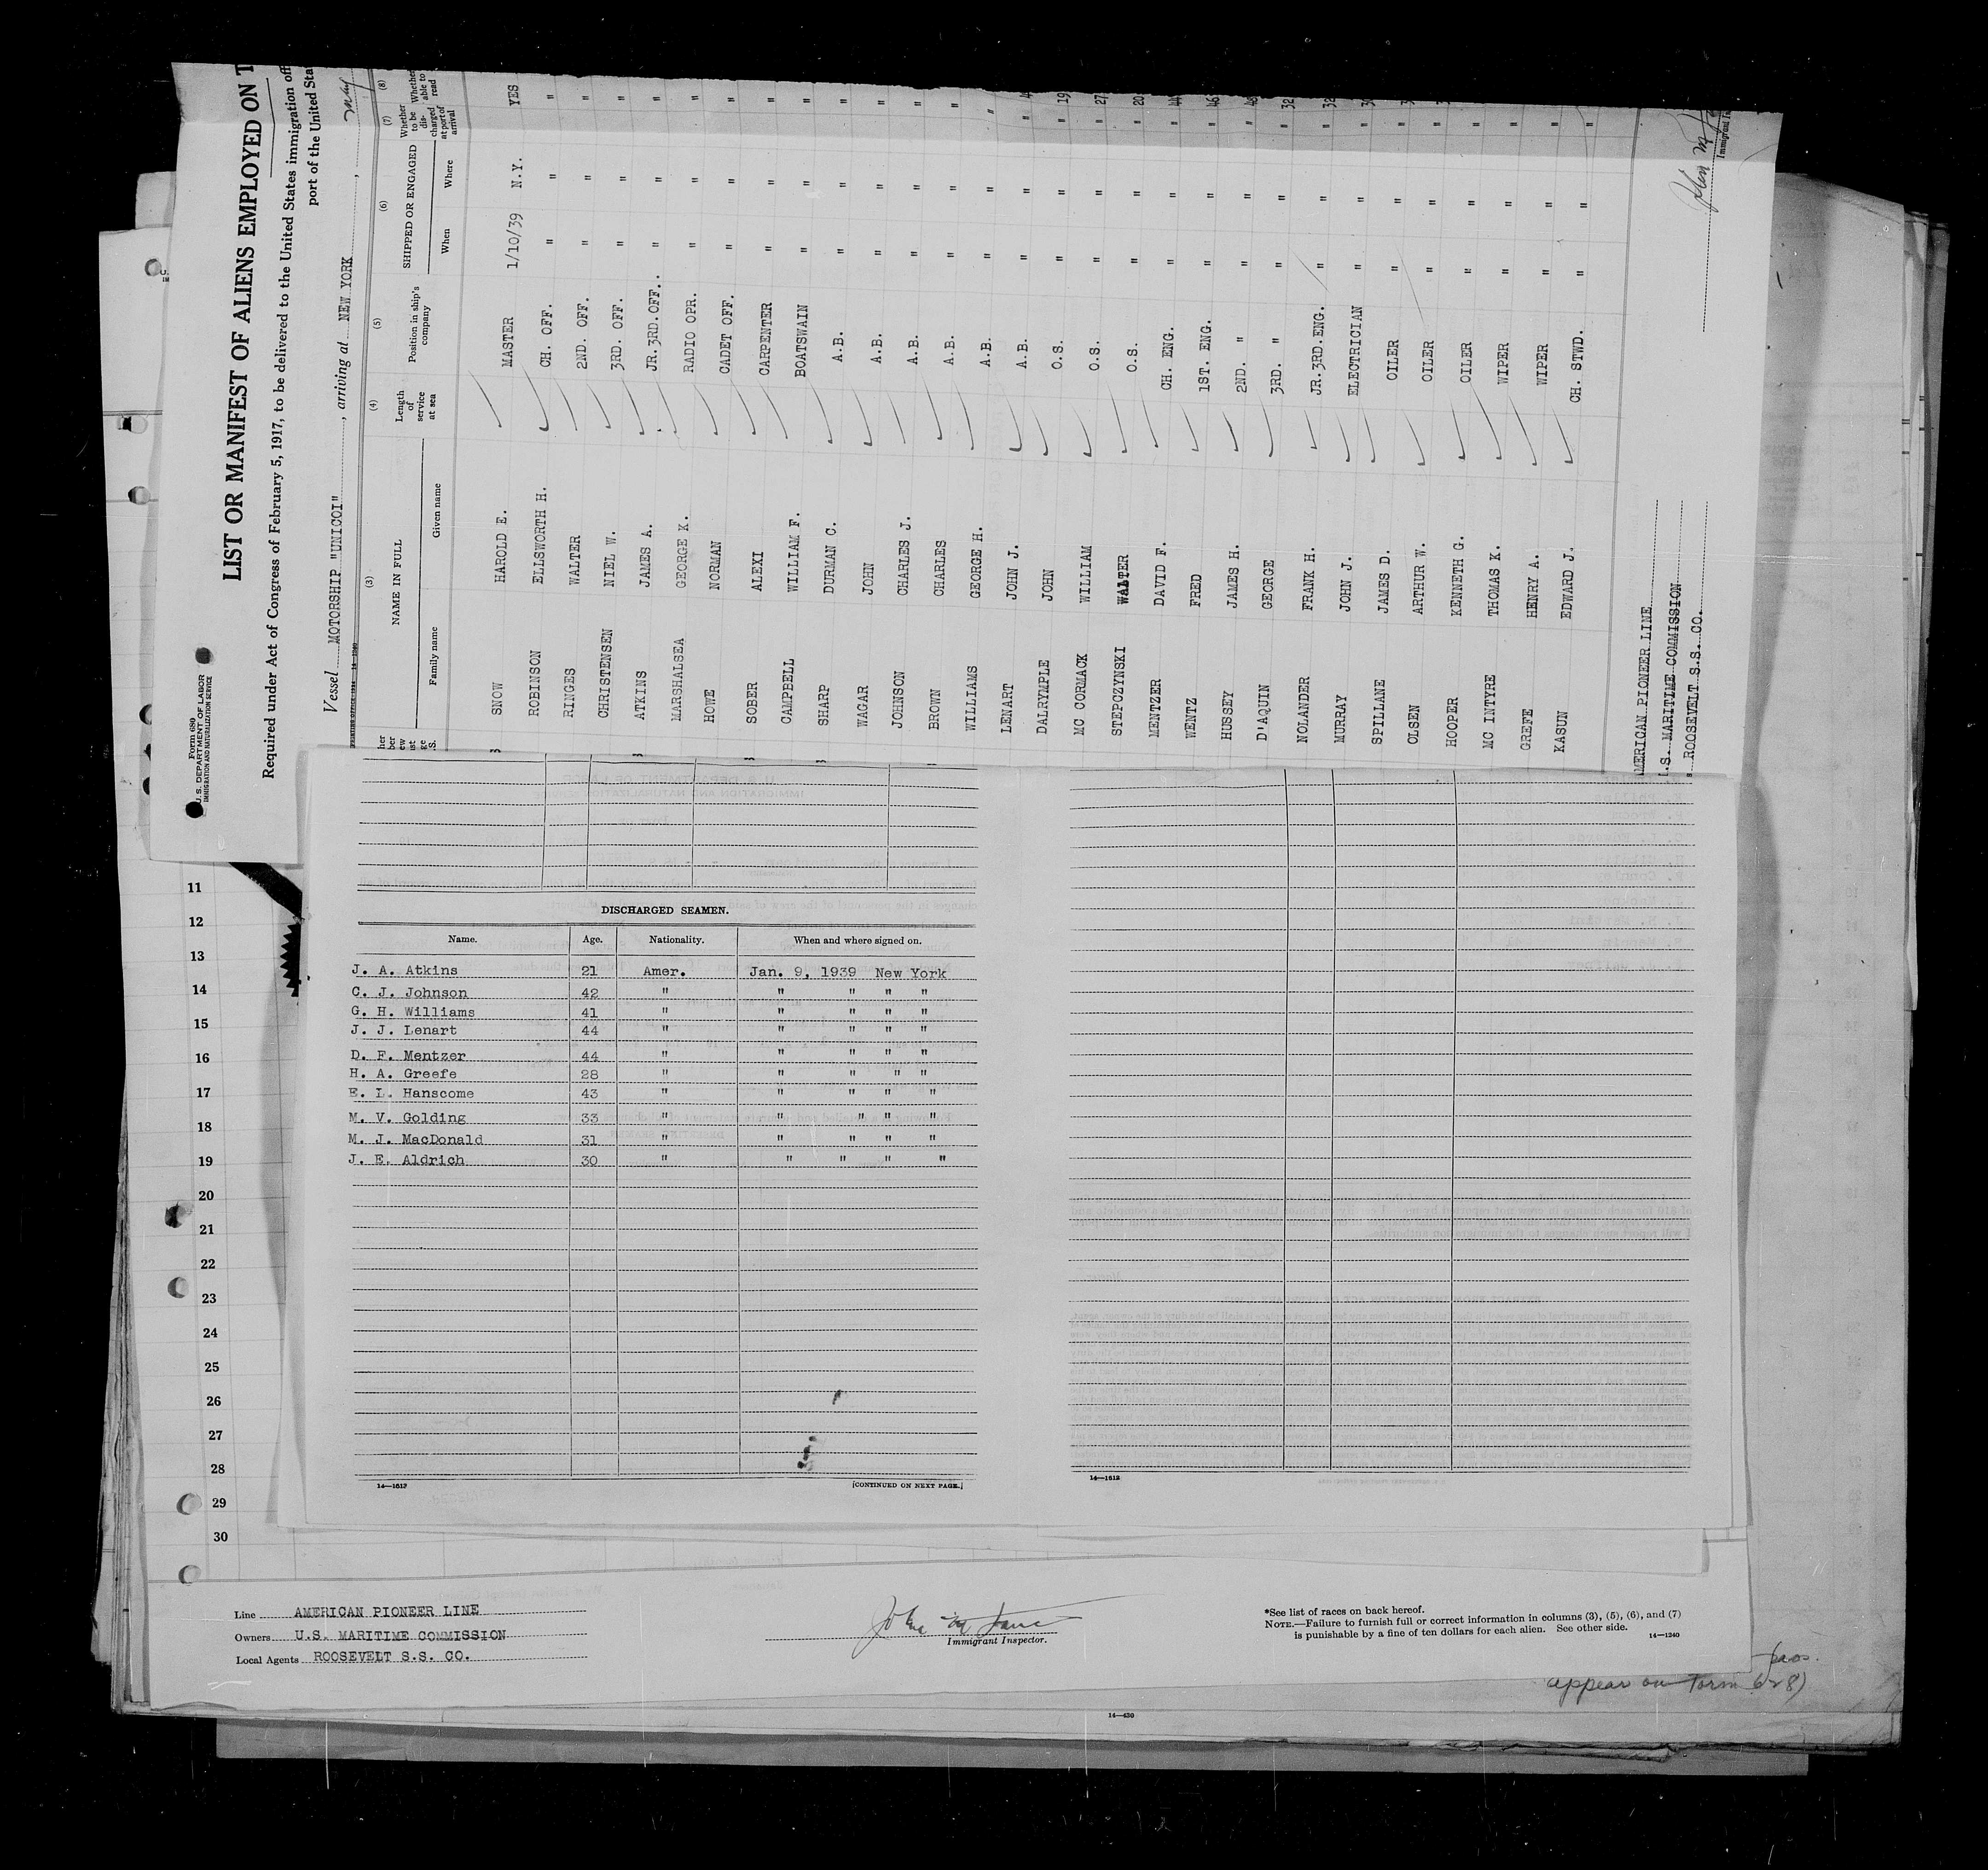 Form 680
U.S. DEPARTMENT OF LABOR
IMMIGRATION AND NATURALIZATION SERVICE
LIST OR MANIFEST OF ALIENS EMPLOYED ON T
Required under Act of Congress of February 5, 1917, to be delivered to the United States immigration off
port of the United Sta
Vessel MOTORSHIP "UNICOI", arriving at NEW YORK,
(3) (4) (5) (6) (7) (8)
NAME IN FULL Length of service at sea Position in ship's company SHIPPED OR ENGAGED Whether to be discharged at port of arrival Whether able to read
Family name Given name When Where
SNOW HAROLD E. MASTER 1/10/39 N.Y. YES
ROBINSON ELLSWORTH H. CH. OFF. " " "
RINGES WALTER 2ND. OFF. " " "
CHRISTENSEN NIEL W. 3RD. OFF. " " "
ATKINS JAMES A. JR. 3RD.OFF.. " " "
MARSHALSEA GEORGE K. RADIO OPR. " " "
HOWE NORMAN CADET OFF. " " "
SOBER ALEXI CARPENTER " " "
CAMPBELL WILLIAM F. BOATSWAIN " " "
SHARP DURMAN C. A.B. " " "
WAGAR JOHN A.B. " " "
JOHNSON CHARLES J. A.B. " " "
BROWN CHARLES A.B. " " "
WILLIAMS GEORGE H. A.B. " " "
LENART JOHN J. A.B. " " "
DALRYMPLE JOHN O.S. " " " 19
MC CORMACK WILLIAM O.S. " " " 27
STEPCZYNSKI WALTER O.S. " " " 20
MENTZER DAVID F. CH. ENG. " " " 44
WENTZ FRED 1ST. ENG. " " " 46
HUSSEY JAMES H. 2ND. " " " " 48
D'AQUIN GEORGE 3RD. " " " " 32
NOLANDER FRANK H. JR.3RD.ENG. " " " 32
MURRAY JOHN J. ELECTRICIAN " " "
SPILLANE JAMES D. OILER " " "
OLSEN ARTHUR W. OILER " " "
HOOPER KENNETH G. OILER " " "
MC INTYRE THOMAS K. WIPER " " "
GREFE HENRY A. WIPER " " "
KASUN EDWARD J. CH. STWD. " " "
AMERICAN PIONEER LINE
U.S. MARITIME COMMISSION
ROOSEVELT S.S. CO.
John M
Immigrant
DISCHARGED SEAMEN.
Name. Age. Nationality. When and where signed on.
J. A. Atkins 21 Amer. Jan. 9, 1939 New York
C. J. Johnson 42 " " " " "
G. H. Williams 41 " " " " "
J. J. Lenart 44 " " " " "
D. F. Mentzer 44 " " " " "
H. A. Greefe 28 " " " " "
E. L. Hanscome 43 " " " " "
M. V. Golding 33 " " " " "
M. J. MacDonald 31 " " " " "
J. E. Aldrich 30 " " " " "
14—1512 [CONTINUED ON NEXT PAGE.]
14—1512
11
12
13
14
15
16
17
18
19
20
21
22
23
24
25
26
27
28
29
30
Line AMERICAN PIONEER LINE
Owners U.S. MARITIME COMMISSION
Local Agents ROOSEVELT S.S. CO.
Immigrant Inspector.
*See list of races on back hereof.
NOTE.—Failure to furnish full or correct information in columns (3), (5), (6), and (7)
is punishable by a fine of ten dollars for each alien. See other side.
14—1240
appear on Form 628)
14—430